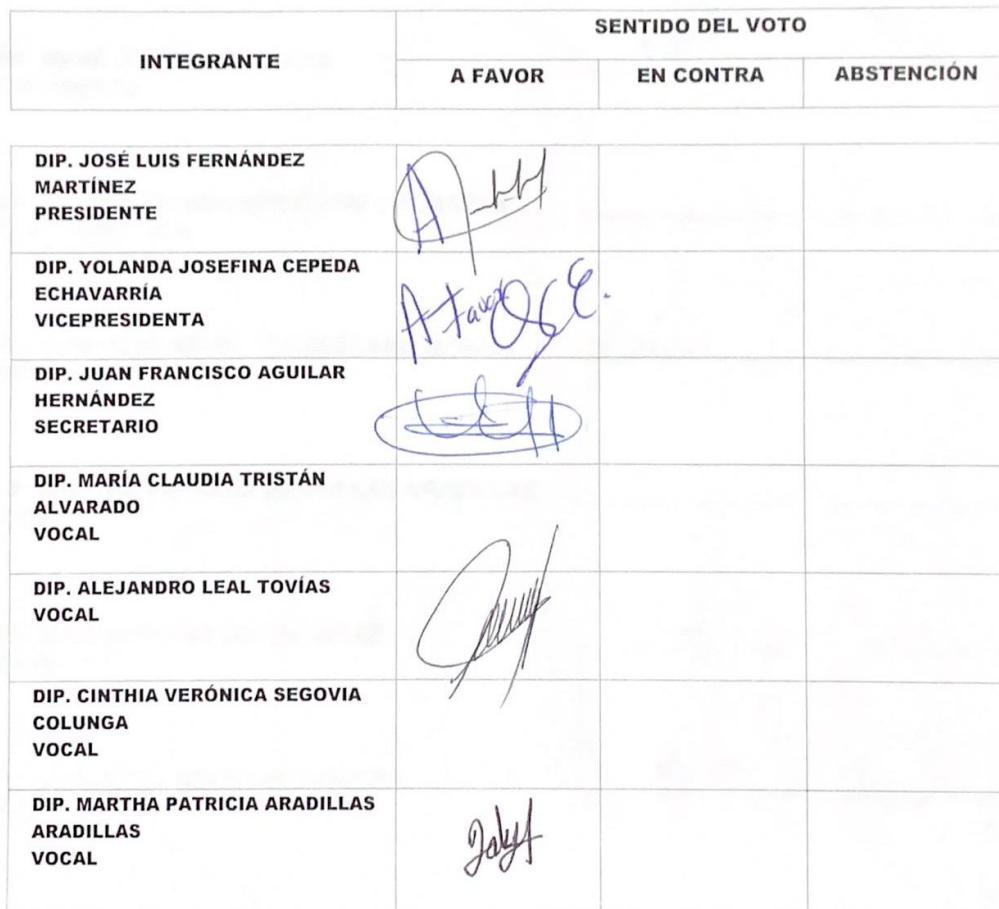 SENTIDO DEL VOTO
INTEGRANTE
A FAVOR EN CONTRA ABSTENCIÓN
DIP. JOSÉ LUIS FERNÁNDEZ
MARTÍNEZ
PRESIDENTE
DIP. YOLANDA JOSEFINA CEPEDA
ECHAVARRÍA
VICEPRESIDENTA
A favor
DIP. JUAN FRANCISCO AGUILAR
HERNÁNDEZ
SECRETARIO
DIP. MARÍA CLAUDIA TRISTÁN
ALVARADO
VOCAL
DIP. ALEJANDRO LEAL TOVÍAS
VOCAL
DIP. CINTHIA VERÓNICA SEGOVIA
COLUNGA
VOCAL
DIP. MARTHA PATRICIA ARADILLAS
ARADILLAS
VOCAL